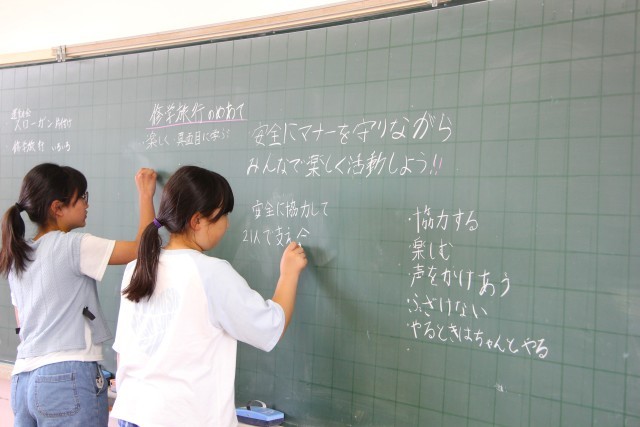 運動会
スローガン 片付け
修学旅行 いろいろ
修学旅行のめあて
楽しく 真面目に学ぶ!
安全にマナーを守りながら
みんなで楽しく活動しよう!!
安全に協力して
21人で支え合
・協力する
・楽しむ
・声をかけあう
・ふざけない
・やるときはちゃんとやる